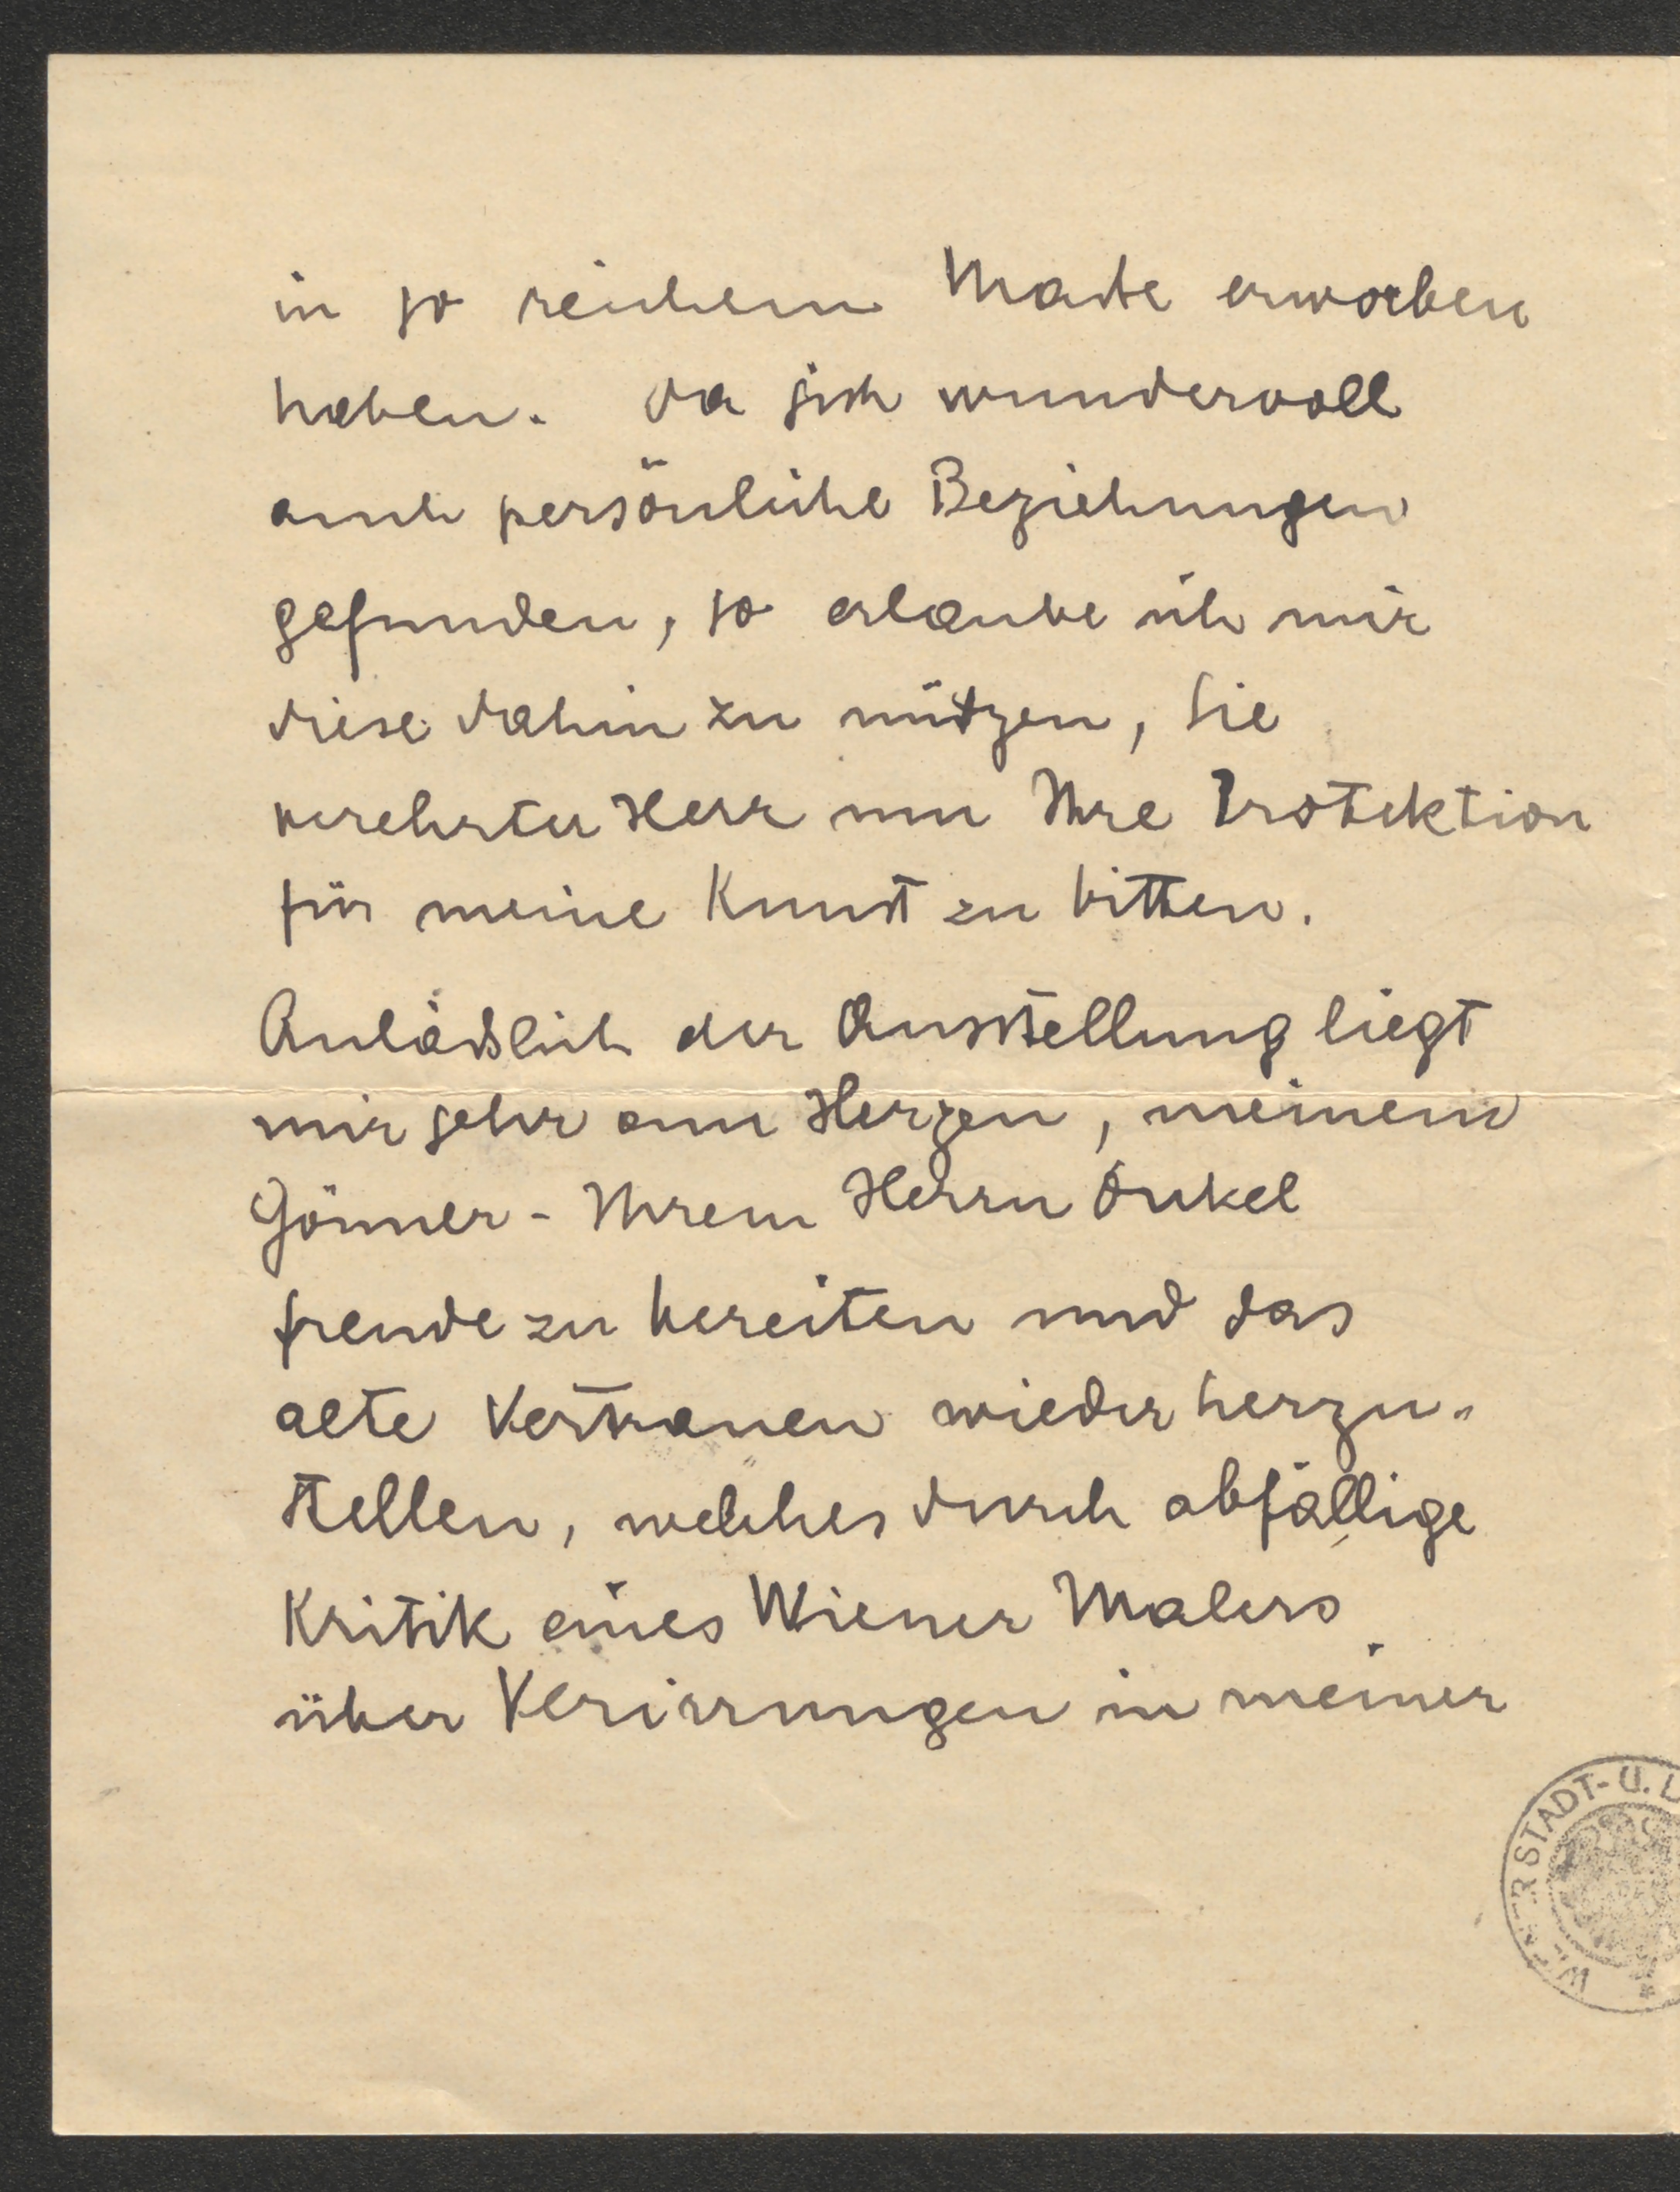 in so reichem Maße erworben
haben. Da sich wundervoll
auch persönliche Beziehungen
gefunden, so erlaube ich mir
diese dahin zu nützen, Sie
verehrter Herr um Ihre Protektion
für meine Kunst zu bitten.
Anläßlich der Ausstellung liegt
mir sehr am Herzen, meinem
Gönner - Ihrem Herrn Onkel
freude zu bereiten und das
alte Vertrauen wieder herzu-
stellen, welches durch abfällige
Kritik eines Wiener Malers
über Verirrungen in meiner
WIENER STADT- U. L